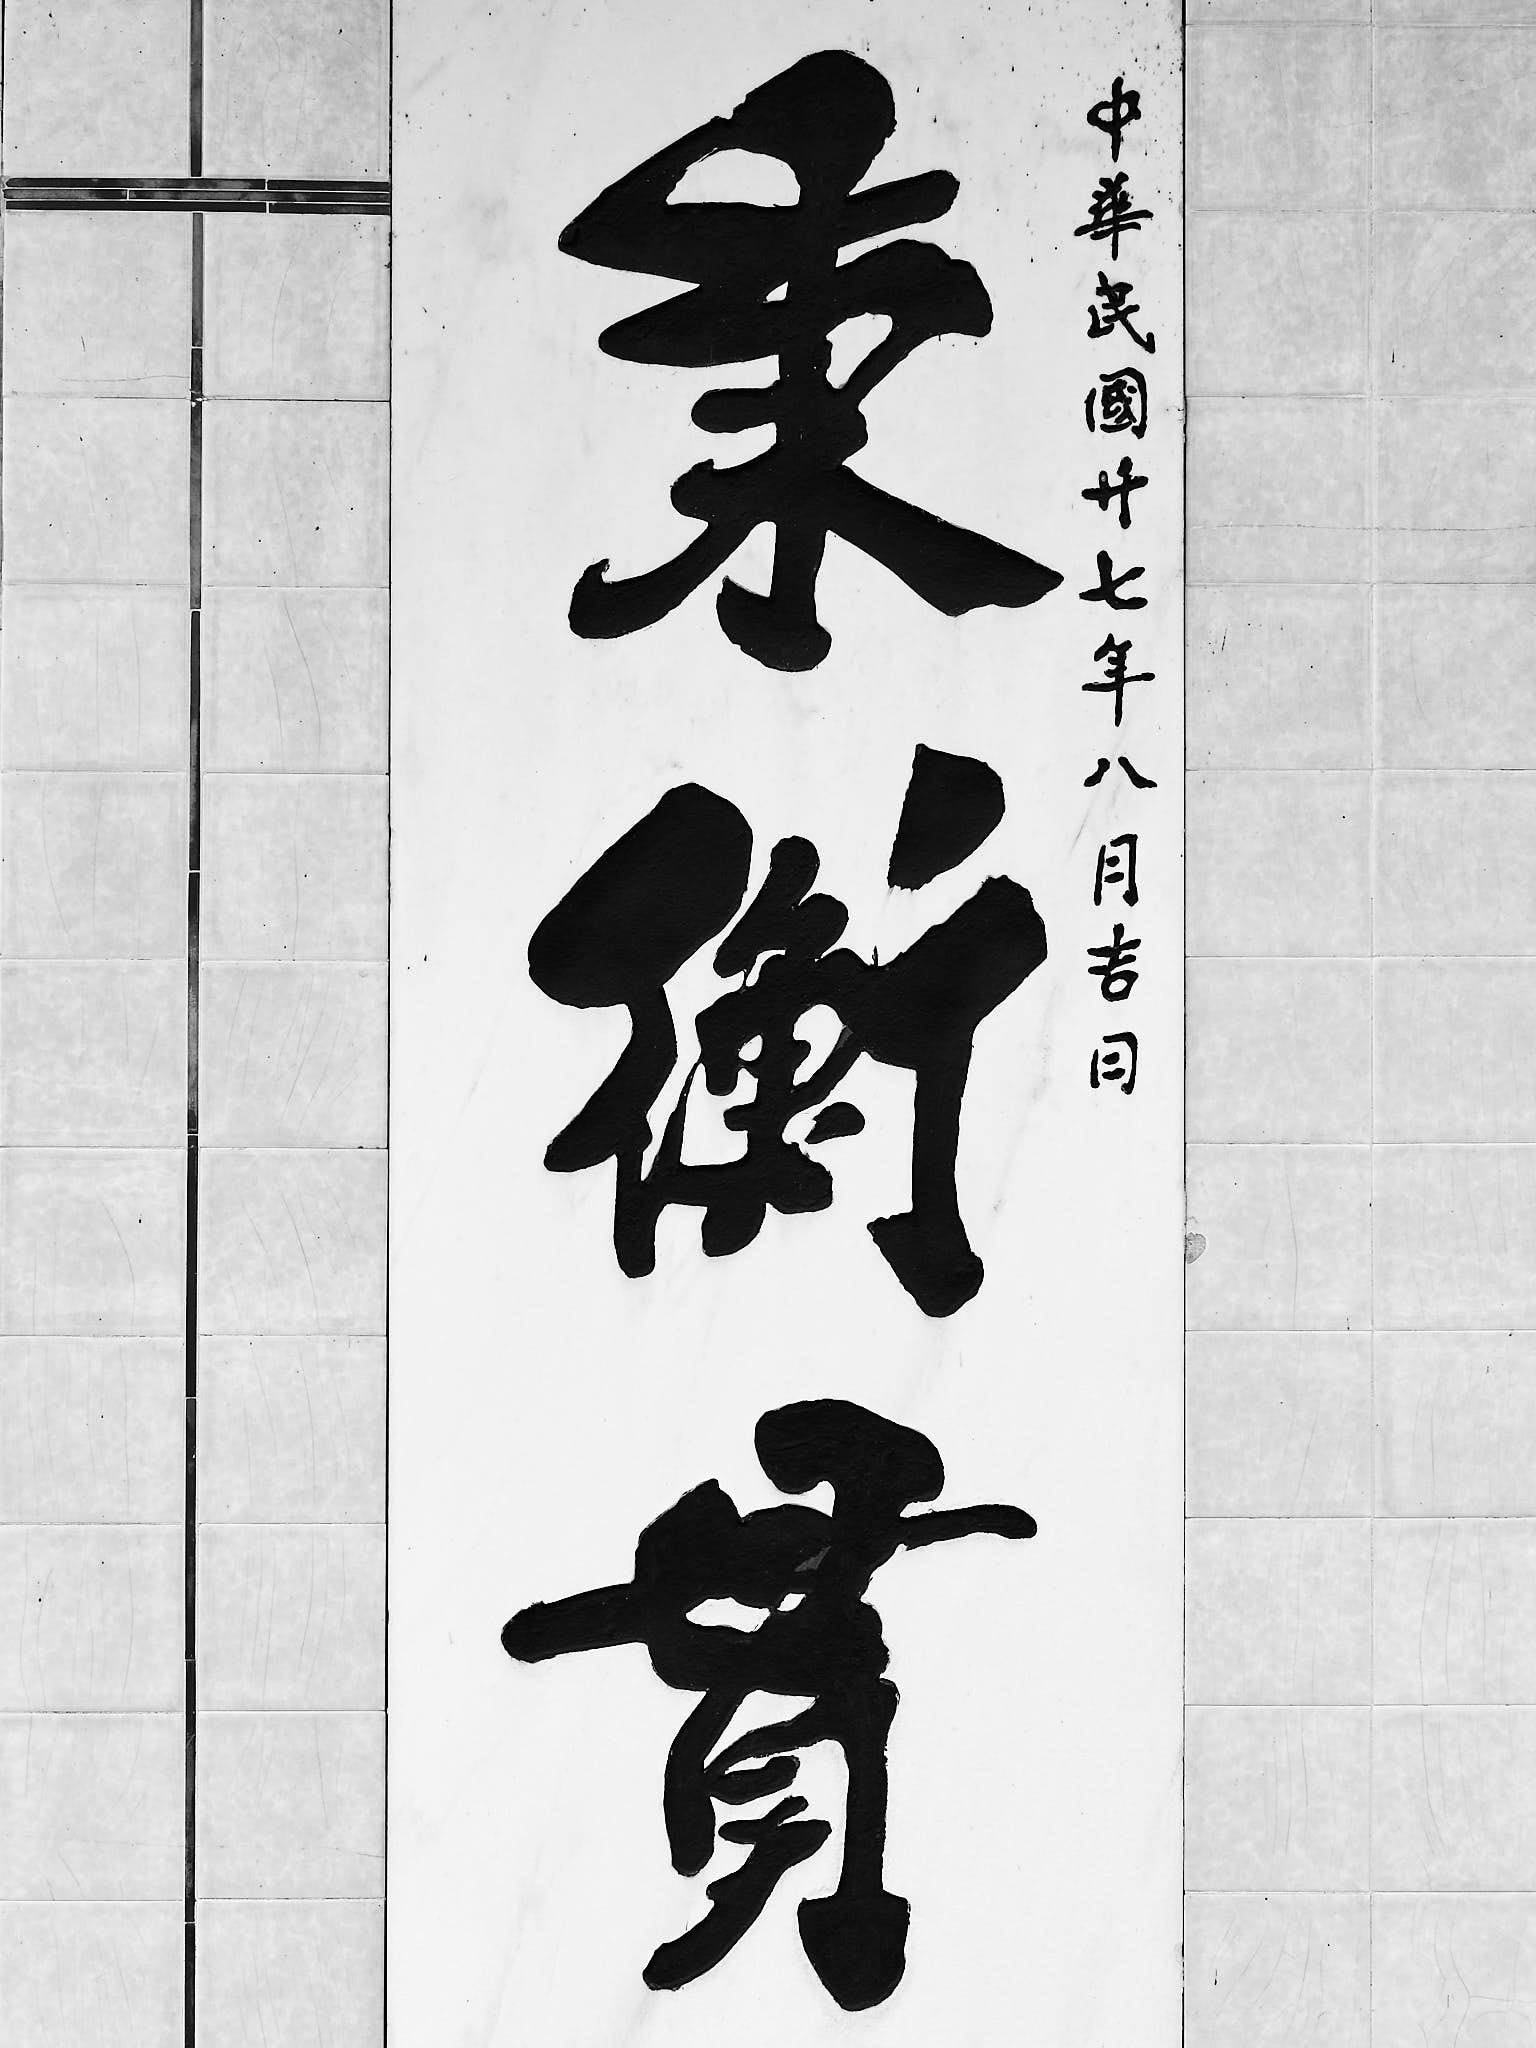 中華民國廿七年八月吉日
秉衡貫